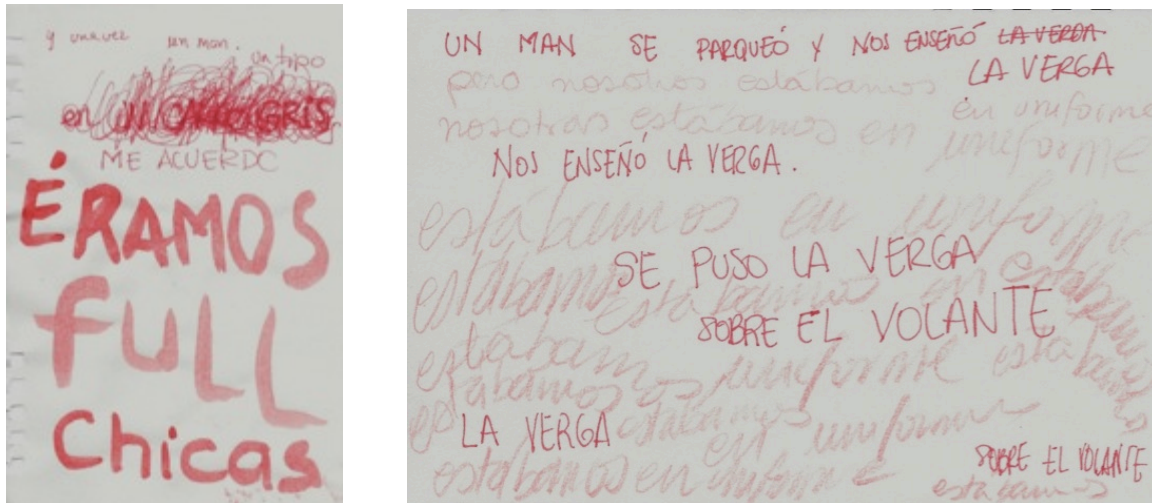 y una vez un man.
un tipo
en MONTEGRIS
ME ACUERDO
ÉRAMOS
FULL
Chicas
UN MAN SE PARQUEÓ Y NOS ENSEÑÓ LA VERGA
LA VERGA
pero nosotros estábamos en uniforme
nosotras estábamos en uniforme
NOS ENSEÑÓ LA VERGA.
estábamos en uniforme
SE PUSO LA VERGA
estábamos estábamos en estábamos
SOBRE EL VOLANTE
estábam uniforme
estábamos
LA VERGA
estábamos
en uniforme
SOBRE EL VOLANTE
estábamos en uniforme
estábamos